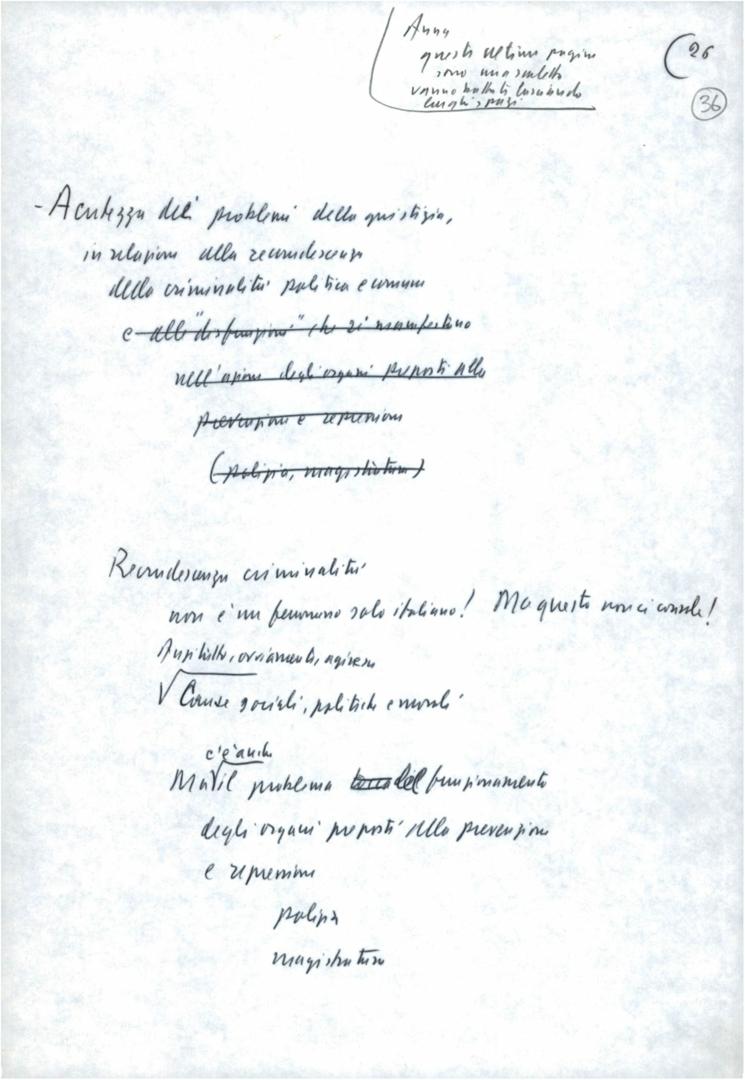 Anna
queste ultime pagine
sono una scaletta
vanno battute lasciando
larghi spazi
26
36
- Acutezza dei problemi della giustizia,
in relazione alla recrudescenza
della criminalità politica e comune
e alle "disfunzioni" che si manifestano
nell'azione degli organi preposti alla
prevenzione e repressione
(polizia, magistratura)
Recrudescenza criminalità
non è un fenomeno solo italiano! Ma questo non ci consola!
Anzitutto, ovviamente, agiscono
Cause sociali, politiche e morali
c'è anche
Ma il problema del funzionamento
degli organi preposti alla prevenzione
e repressione
polizia
magistratura